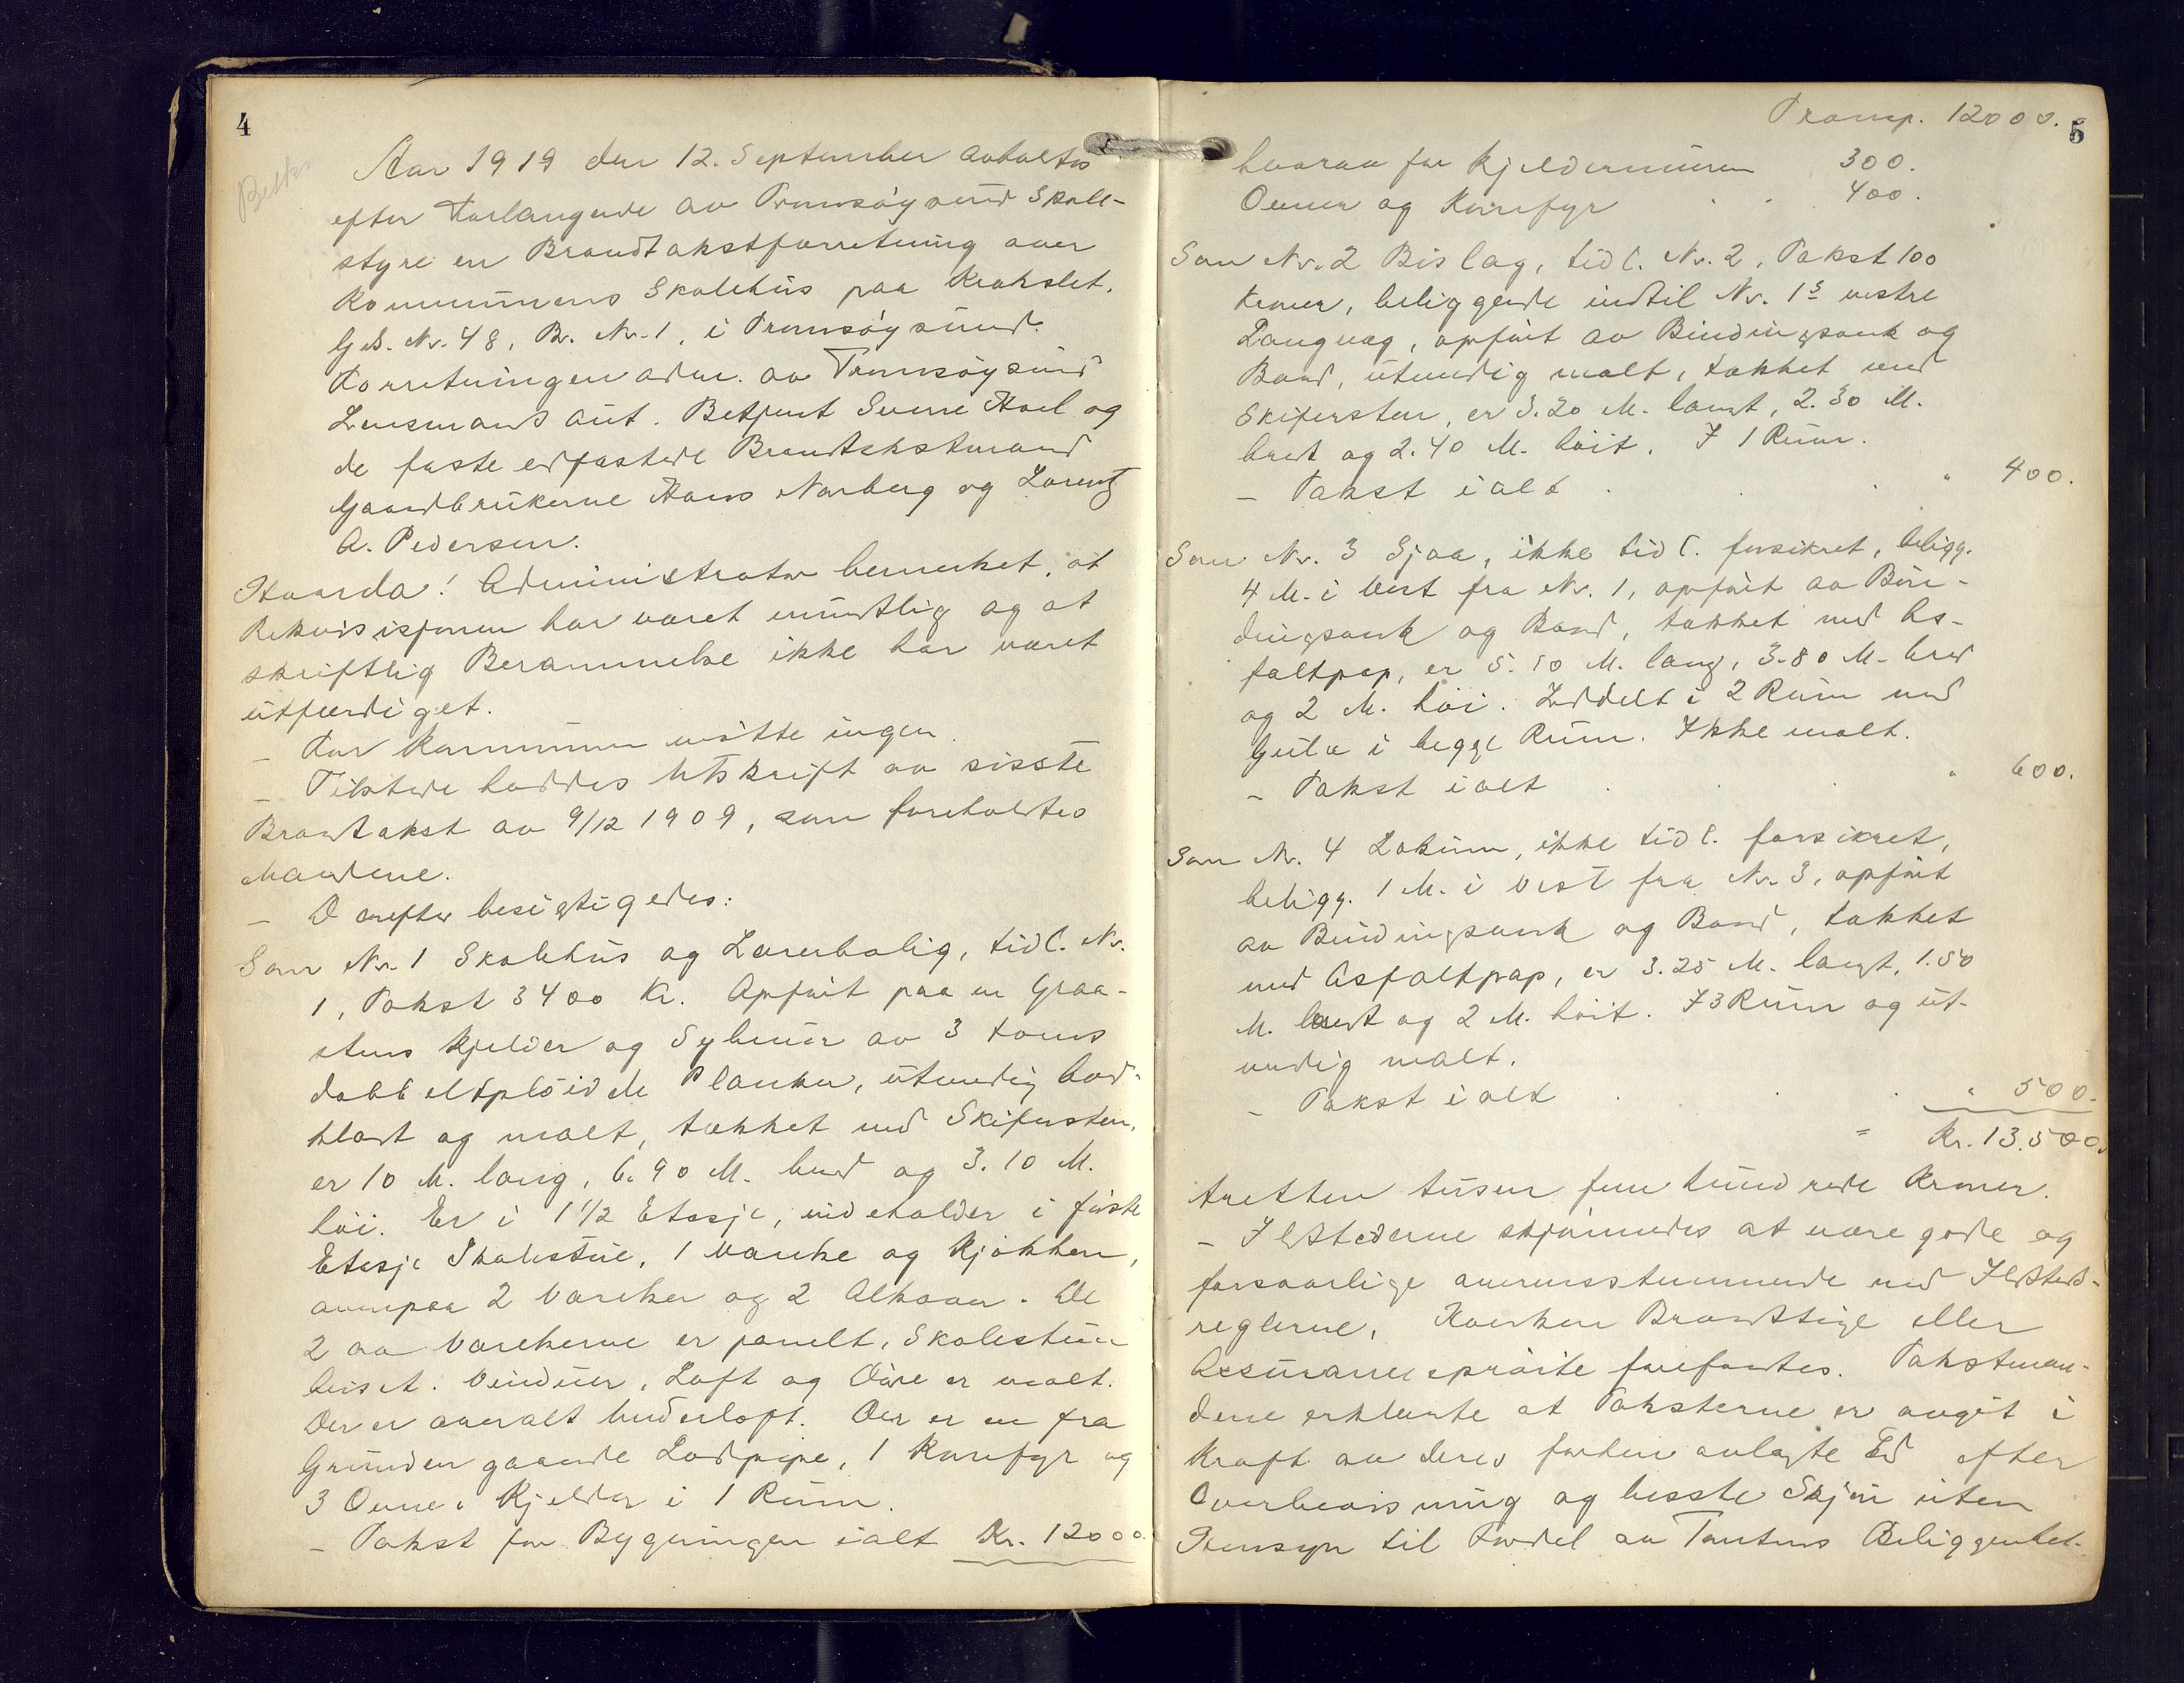 4
Aar 1919 den 12. September avholtes
efter Forlangende av Tromsøysund Skole-
styre en Brandtakstforretning over
Kommunens Skolehus paa Krokslet.
Gd. Nr. 48, Br. Nr. 1, i Tromsøysund.
Forretningen adm. av Tromsøysund
Lensmans aut. Betjent Sverre Hoel og
de faste edfæstede Brandtakstmænd
Gaardbrukerne Hans Norberg og Lorentz
A. Pedersen.
Hvorda! Administrator bemerket, at
Rekvisisjonen har været mundtlig og at
skriftlig Berammelse ikke har været
utfærdiget.
- For Kommunen møtte ingen.
- Tilstede haddes Utskrift av sisste
Brandtakst av 9/12 1909, som foreholdtes
Mændene.
- Derefter besigtigedes:
Som Nr. 1 Skolehus og Lærerbolig, tidl. Nr.
1, Takst 3400 Kr. Opført paa en Graa-
stens Kjelder og Sylmur av 3 toms
dobbeltpløiede Planker, utvendig bord-
klædt og malt, tækket med Skifersten,
er 10 M. lang, 6.90 M. bred og 3.10 M.
høi. Er i 1 1/2 Etasje, indeholder i første
Etasje Skolestue, 1 Værelse og Kjøkken,
ovenpaa 2 Værelser og 2 Alkover. De
2 av Værelserne er panelt, Skolestuen
beiset. Vinduer, Loft og Døre er malt.
Der er overalt Underloft. Der er en fra
Grunden gaaende Lodpipe, 1 Komfyr og
3 Ovne. Kjelder i 1 Rum.
- Takst for Bygningen ialt Kr. 12000.
Transp. 12000.
5
hvorav for Kjeldermuren 300.
Ovner og Komfyr 400.
Som Nr. 2 Bislag, tidl. Nr. 2, Takst 100
Kroner, beliggende indtil Nr. 1s vestre
Langvæg, opført av Bindingsverk og
Bord, utvendig malt, tækket med
Skifersten, er 3.20 M. langt, 2.30 M.
bredt og 2.40 M. høit. I 1 Rum.
- Takst ialt " 400.
Som Nr. 3 Sjaa, ikke tidl. forsikret, beligg.
4 M. i Vest fra Nr. 1, opført av Bin-
dingsverk og Bord, tækket med As-
faltpap, er 5.50 M. lang, 3.80 M. bred
og 2 M. høi. Inddelt i 2 Rum med
Gulv i begge Rum. Ikke malt.
- Takst ialt " 600.
Som Nr. 4 Lokum, ikke tidl. forsikret,
beligg. 1 M. i Vest fra Nr. 3, opført
av Bindingsverk og Bord, tækket
med Asfaltpap, er 3.25 M. langt, 1.50
M. bredt og 2 M. høit. I 3 Rum og ut-
vendig malt.
- Takst ialt " 500.
= Kr. 13.500.
tretten tusen fem hundrede Kroner.
- Ildstederne skjønnedes at være gode og
forsvarlige overensstemmende med Ildsteds-
reglerne. Hverken Brandstige eller
Assurancesprøite forefantes. Takstmæn-
dene erklærte at Taksterne er avgit i
Kraft av deres forhen avlagte Ed efter
Overbevisning og beste Skjøn uten
Hensyn til Fordel av Tomtens Beliggenhet.